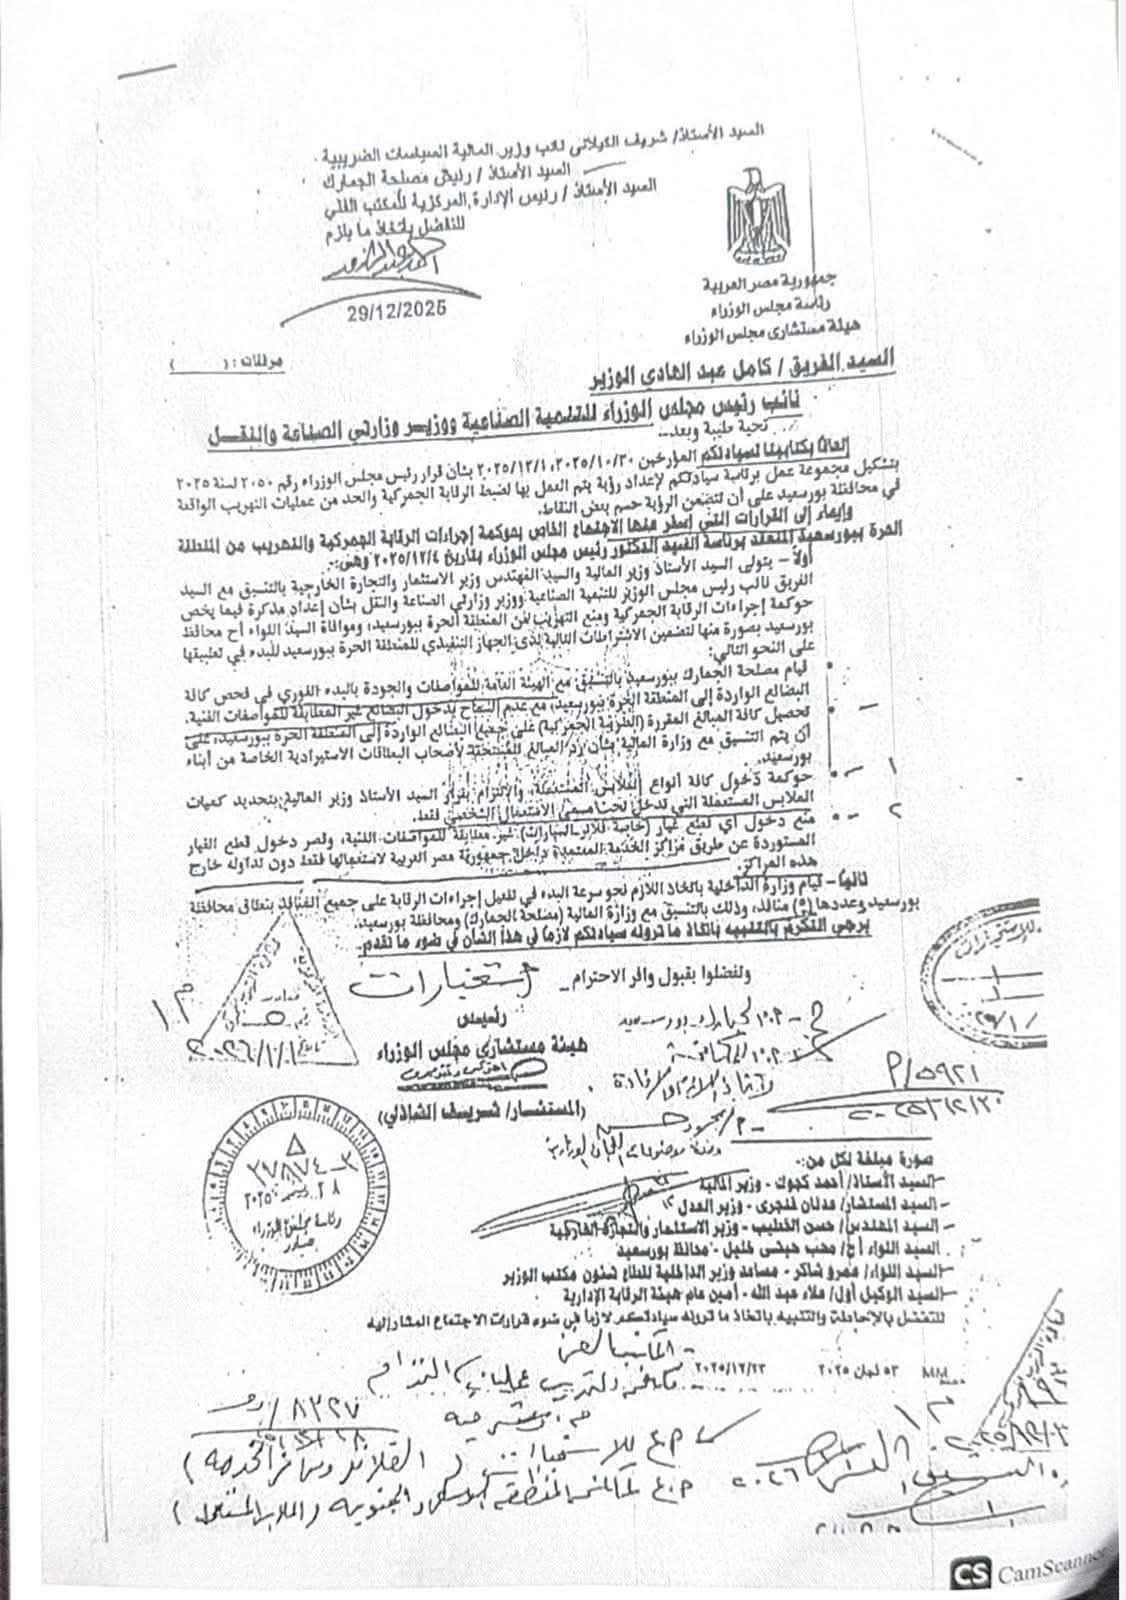 السيد الأستاذ/ شريف الكيلاني نائب وزير المالية للسياسات الضريبية
السيد الأستاذ / رئيس مصلحة الجمارك
السيد الأستاذ / رئيس الإدارة المركزية للمكتب الفني
للتفضل باتخاذ ما يلزم
29/12/2025
جمهورية مصر العربية
رئاسة مجلس الوزراء
هيئة مستشاري مجلس الوزراء
مرفقات : ( )
السيد الفريق / كامل عبد الهادي الوزير
نائب رئيس مجلس الوزراء للتنمية الصناعية ووزير وزارتي الصناعة والنقل
تحية طيبة وبعد...
إلحاقًا بكتابينا لسيادتكم المؤرخين ٢٠٢٥/١٠/٣٠، ٢٠٢٥/١٢/١ بشأن قرار رئيس مجلس الوزراء رقم ٢٠٥٠ لسنة ٢٠٢٥
بتشكيل مجموعة عمل برئاسة سيادتكم لإعداد رؤية يتم العمل بها لضبط الرقابة الجمركية والحد من عمليات التهريب الواقعة
في محافظة بورسعيد على أن تتضمن الرؤية حسم بعض النقاط.
وإيماء إلى القرارات التي أسفر عنها الاجتماع الخاص بحوكمة إجراءات الرقابة الجمركية والتهريب من المنطقة
الحرة ببورسعيد المنعقد برئاسة السيد الدكتور رئيس مجلس الوزراء بتاريخ ٢٠٢٥/١٢/٤ وهي:-
أولاً – يتولى السيد الأستاذ وزير المالية والسيد المهندس وزير الاستثمار والتجارة الخارجية بالتنسيق مع السيد
الفريق نائب رئيس مجلس الوزير للتنمية الصناعية ووزير وزارتي الصناعة والنقل بشأن إعداد مذكرة فيما يخص
حوكمة إجراءات الرقابة الجمركية ومنع التهريب من المنطقة الحرة ببورسعيد، وموافاة السيد اللواء أح محافظ
بورسعيد بصورة منها لتضمين الاشتراطات التالية لدى الجهاز التنفيذي للمنطقة الحرة ببورسعيد للبدء في تطبيقها
على النحو التالي:
• قيام مصلحة الجمارك ببورسعيد بالتنسيق مع الهيئة العامة للمواصفات والجودة بالبدء الفوري في فحص كافة
البضائع الواردة إلى المنطقة الحرة ببورسعيد، مع عدم السماح بدخول البضائع غير المطابقة للمواصفات الفنية.
• تحصيل كافة المبالغ المقررة (الضريبة الجمركية) على جميع البضائع الواردة إلى المنطقة الحرة ببورسعيد، على
أن يتم التنسيق مع وزارة المالية بشأن رد المبالغ المستحقة لأصحاب البطاقات الاستيرادية الخاصة من أبناء
بورسعيد.
١ • حوكمة دخول كافة أنواع الملابس المستعملة، والالتزام بقرار السيد الأستاذ وزير المالية بتحديد كميات
الملابس المستعملة التي تدخل تحت مسمى الاستعمال الشخصي فقط.
٢ • منع دخول أي قطع غيار (خاصة السيارات) غير مطابقة للمواصفات الفنية، وقصر دخول قطع الغيار
المستوردة عن طريق مراكز الخدمة المعتمدة داخل جمهورية مصر العربية لاستعمالها فقط دون تداوله خارج
هذه المراكز.
ثانيًا – قيام وزارة الداخلية باتخاذ اللازم نحو سرعة البدء في تفعيل إجراءات الرقابة على جميع المنافذ بنطاق محافظة
بورسعيد وعددها (٥) منافذ، وذلك بالتنسيق مع وزارة المالية (مصلحة الجمارك) ومحافظة بورسعيد.
يرجى التكرم بالتنبيه باتخاذ ما ترونه سيادتكم لازمًا في هذا الشأن في ضوء ما تقدم.
وتفضلوا بقبول وافر الاحترام
استخبارات
م ١
رئيس
هيئة مستشاري مجلس الوزراء
(المستشار/ شريف الشاذلي)
٢٠٢٦/١/١
٥٩٢١/م
٢٠٢٥/١٢/٣٠
٣٧٨٧٤-٣
٢٨ ديسمبر ٢٠٢٥
رئاسة مجلس الوزراء
صادر
صورة مبلغة لكل من:-
السيد الأستاذ/ أحمد كجوك - وزير المالية
السيد المستشار/ عدنان فنجري - وزير العدل
السيد المهندس/ حسن الخطيب - وزير الاستثمار والتجارة الخارجية
السيد اللواء أح/ محب حبشي خليل - محافظ بورسعيد
السيد اللواء/ عمرو شاكر - مساعد وزير الداخلية لقطاع شئون مكتب الوزير
السيد الوكيل أول/ علاء عبد الله - أمين عام هيئة الرقابة الإدارية
للتفضل بالإحاطة والتنبيه باتخاذ ما ترونه سيادتكم لازمًا في ضوء قرارات الاجتماع المشار إليه
MM ٥٣ لجان ٢٠٢٥ ٢٠٢٥/١٢/٢٣
٨٣٢٧
CS CamScanner